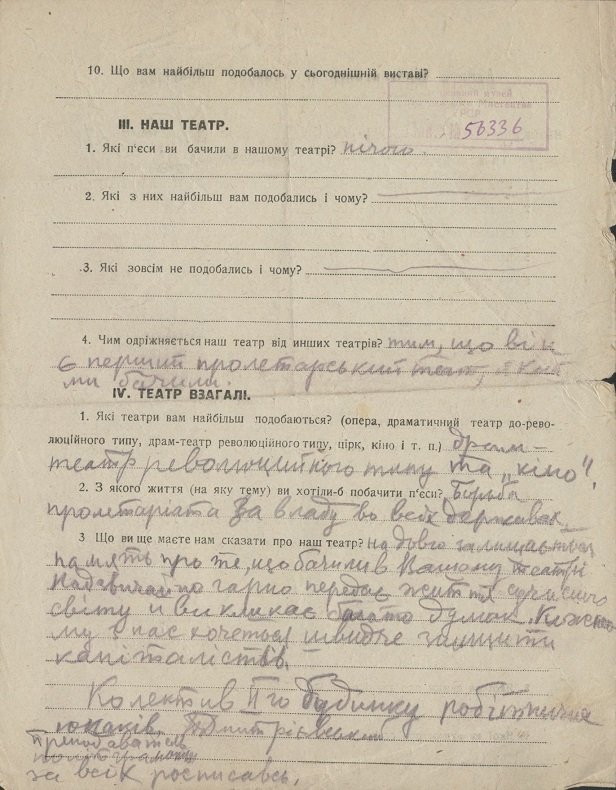 10. Що вам найбільш подобалось у сьогоднішній виставі?
музей
56336
III. НАШ ТЕАТР.
1. Які п'єси ви бачили в нашому театрі? нічого
2. Які з них найбільш вам подобались і чому?
3. Які зовсім не подобались і чому?
4. Чим одріжняється наш театр від инших театрів? тим, що він
є перший пролетарський театр, який
ми бачили.
IV. ТЕАТР ВЗАГАЛІ.
1. Які театри вам найбільш подобаються? (опера, драматичний театр до-рево-
люційного типу, драм-театр революційного типу, цірк, кіно і т. п.) драм-
театр революційного типу та „кіно".
2. З якого життя (на яку тему) ви хотіли-б побачити п'єси? Борьба
пролетаріата за владу во всех державах
3 Що ви ще маєте нам сказати про наш театр? на довго залишається
память про те, що бачили в Вашому театрі
Надзвичайно гарно передає життя сучасного
світу и викликає багато думок. Кижно
му з нас хочеться швидче знищити
капіталістів.
Колектив II го будинку робітничих
юнаків. Дмитрієвський
преподаватель
за всіх росписавсь.